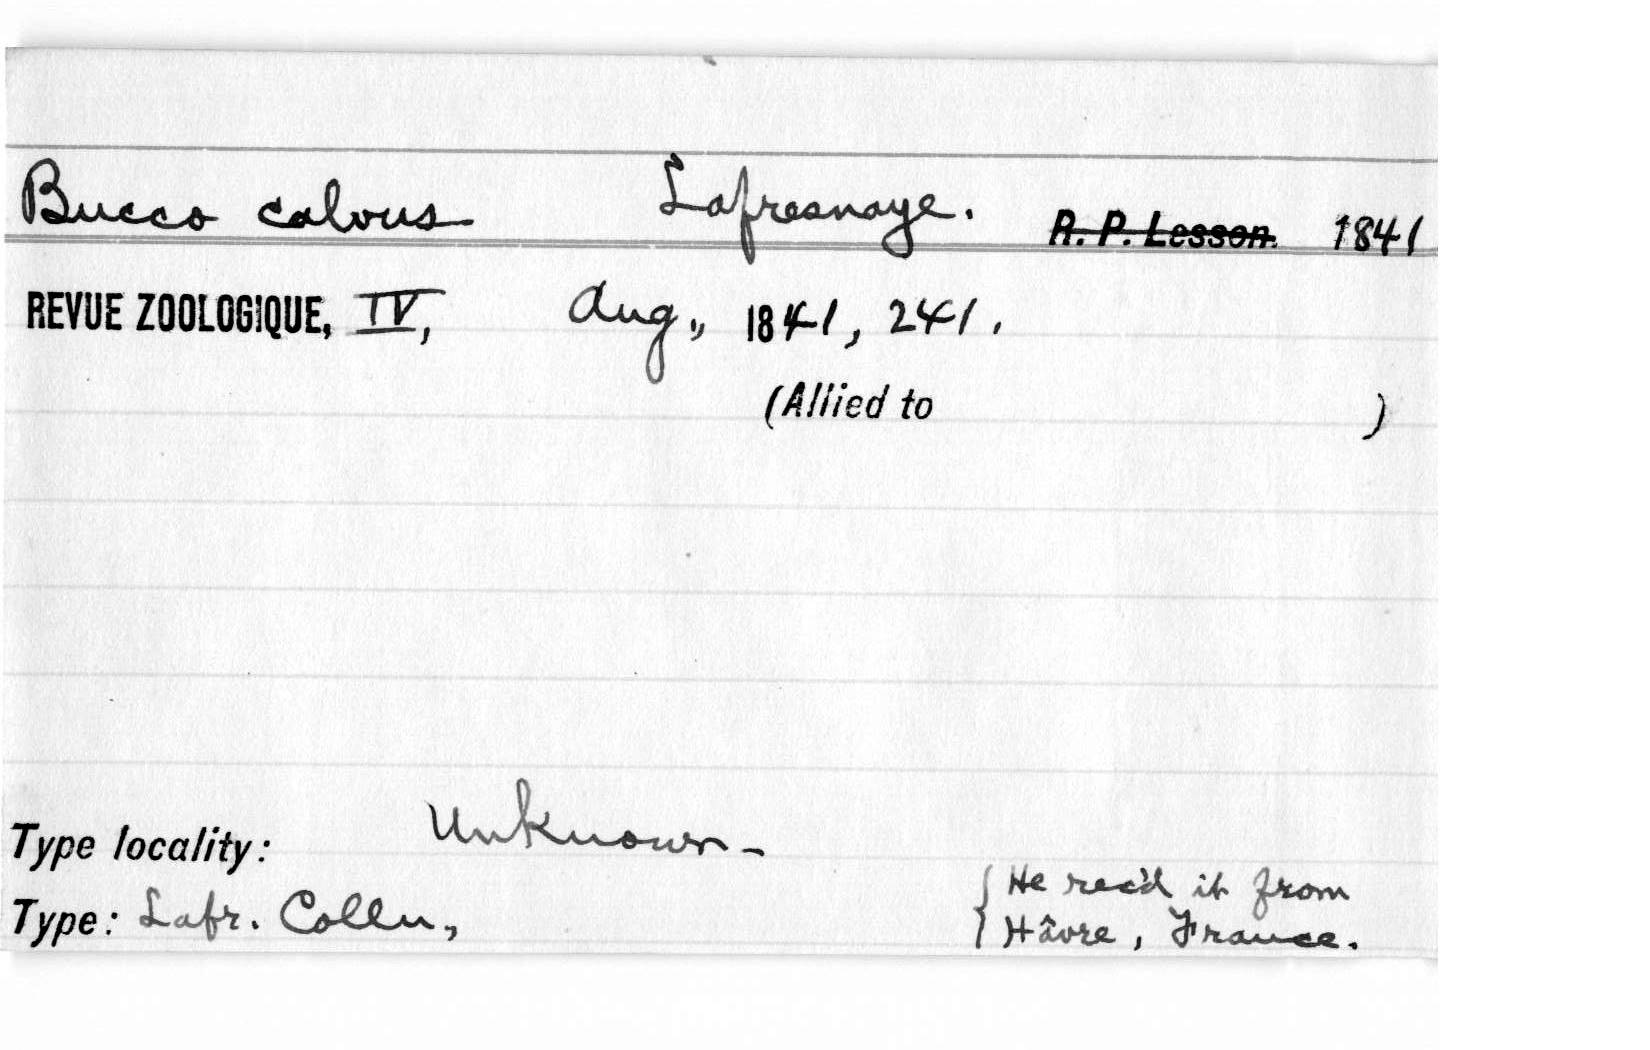 Bucco calvus Lafresnaye. R. P. Lesson. 1841
REVUE ZOOLOGIQUE, IV, Aug., 1841, 241.
(Allied to )
Type locality: Unknown -
Type: Lafr. Colln,
{ He rec'd it from
Hâvre, France.